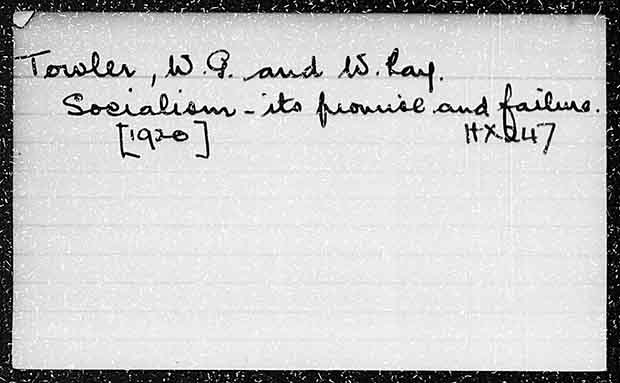 Towler, W. G. and W. Ray.
Socialism - its promise and failure.
[1920] HX247